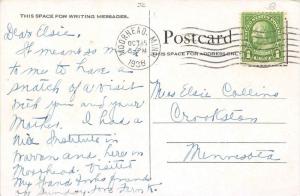 THIS SPACE FOR WRITING MESSAGES.
Postcard
THIS SPACE FOR ADDRESS ONLY
MOORHEAD, MINN.
OCT 15
PM
1928
Dear Elsie,
It means so much
to me to have a
snatch of a visit
with you and your
Mother. I had a
nice Institute in
Warren and, here in
Moorhead, visited
my
Sunday, and
Miss Elsie Collins
Crookston
Minnesota